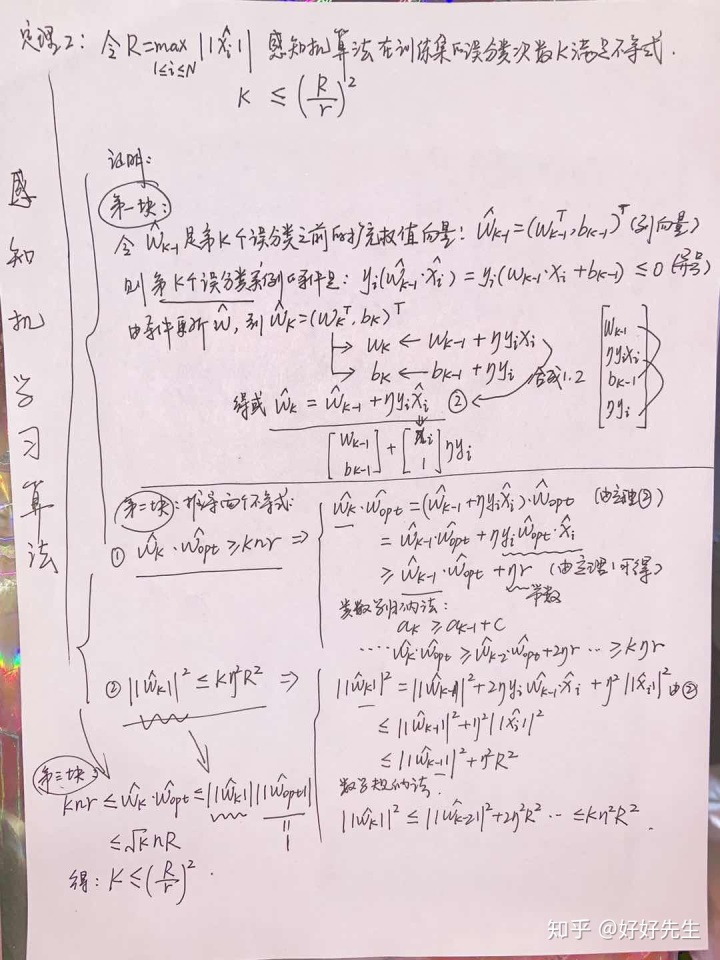 定理2: 令R=max ||x̂i|| 感知机算法在训练集的误分类次数K满足不等式.
1≤i≤N
K ≤ (R/r)²
感知机学习算法
证明:
第一块:
令 ŵk-1 是第K个误分类之前的扩充权值向量: ŵk-1=(wk-1ᵀ, bk-1)ᵀ (列向量)
则 第K个误分类实例的条件是: yi(ŵk-1·x̂i) = yi(wk-1·xi+bk-1) ≤0 (异号)
由条件更新ŵ, 到 ŵk=(wkᵀ, bk)ᵀ
wk ← wk-1+ηyixi
bk ← bk-1+ηyi
合或1.2
[wk-1
ηyixi
bk-1
ηyi]
得或 ŵk = ŵk-1+ηyix̂i ②
[wk-1 bk-1] + [xi 1]ηyi
第二块: 推导两个不等式:
① ŵk·ŵopt ≥kηr =>
ŵk·ŵopt=(ŵk-1+ηyix̂i)·ŵopt (由定理②)
= ŵk-1·ŵopt+ηyiŵopt·x̂i
≥ ŵk-1·ŵopt+ηr (由定理1可得)
常数
类数学归纳法:
ak ≥ak-1+C
···· ŵk·ŵopt ≥ŵk-2·ŵopt+2ηr ·· ≥kηr
② ||ŵk||² ≤Kη²R² =>
||ŵk||² = ||ŵk-1||²+2ηyiŵk-1·x̂i + η²||x̂i||² 由②
≤ ||ŵk-1||²+η²||x̂i||²
≤ ||ŵk-1||²+η²R²
数学规纳法.
||ŵk||² ≤ ||ŵk-2||²+2η²R² ·· ≤kη²R².
第三块:
kηr ≤ŵk·ŵopt ≤||ŵk|| ||ŵopt||
=
1
≤√kηR
得: K≤(R/r)².
知乎 @好好先生